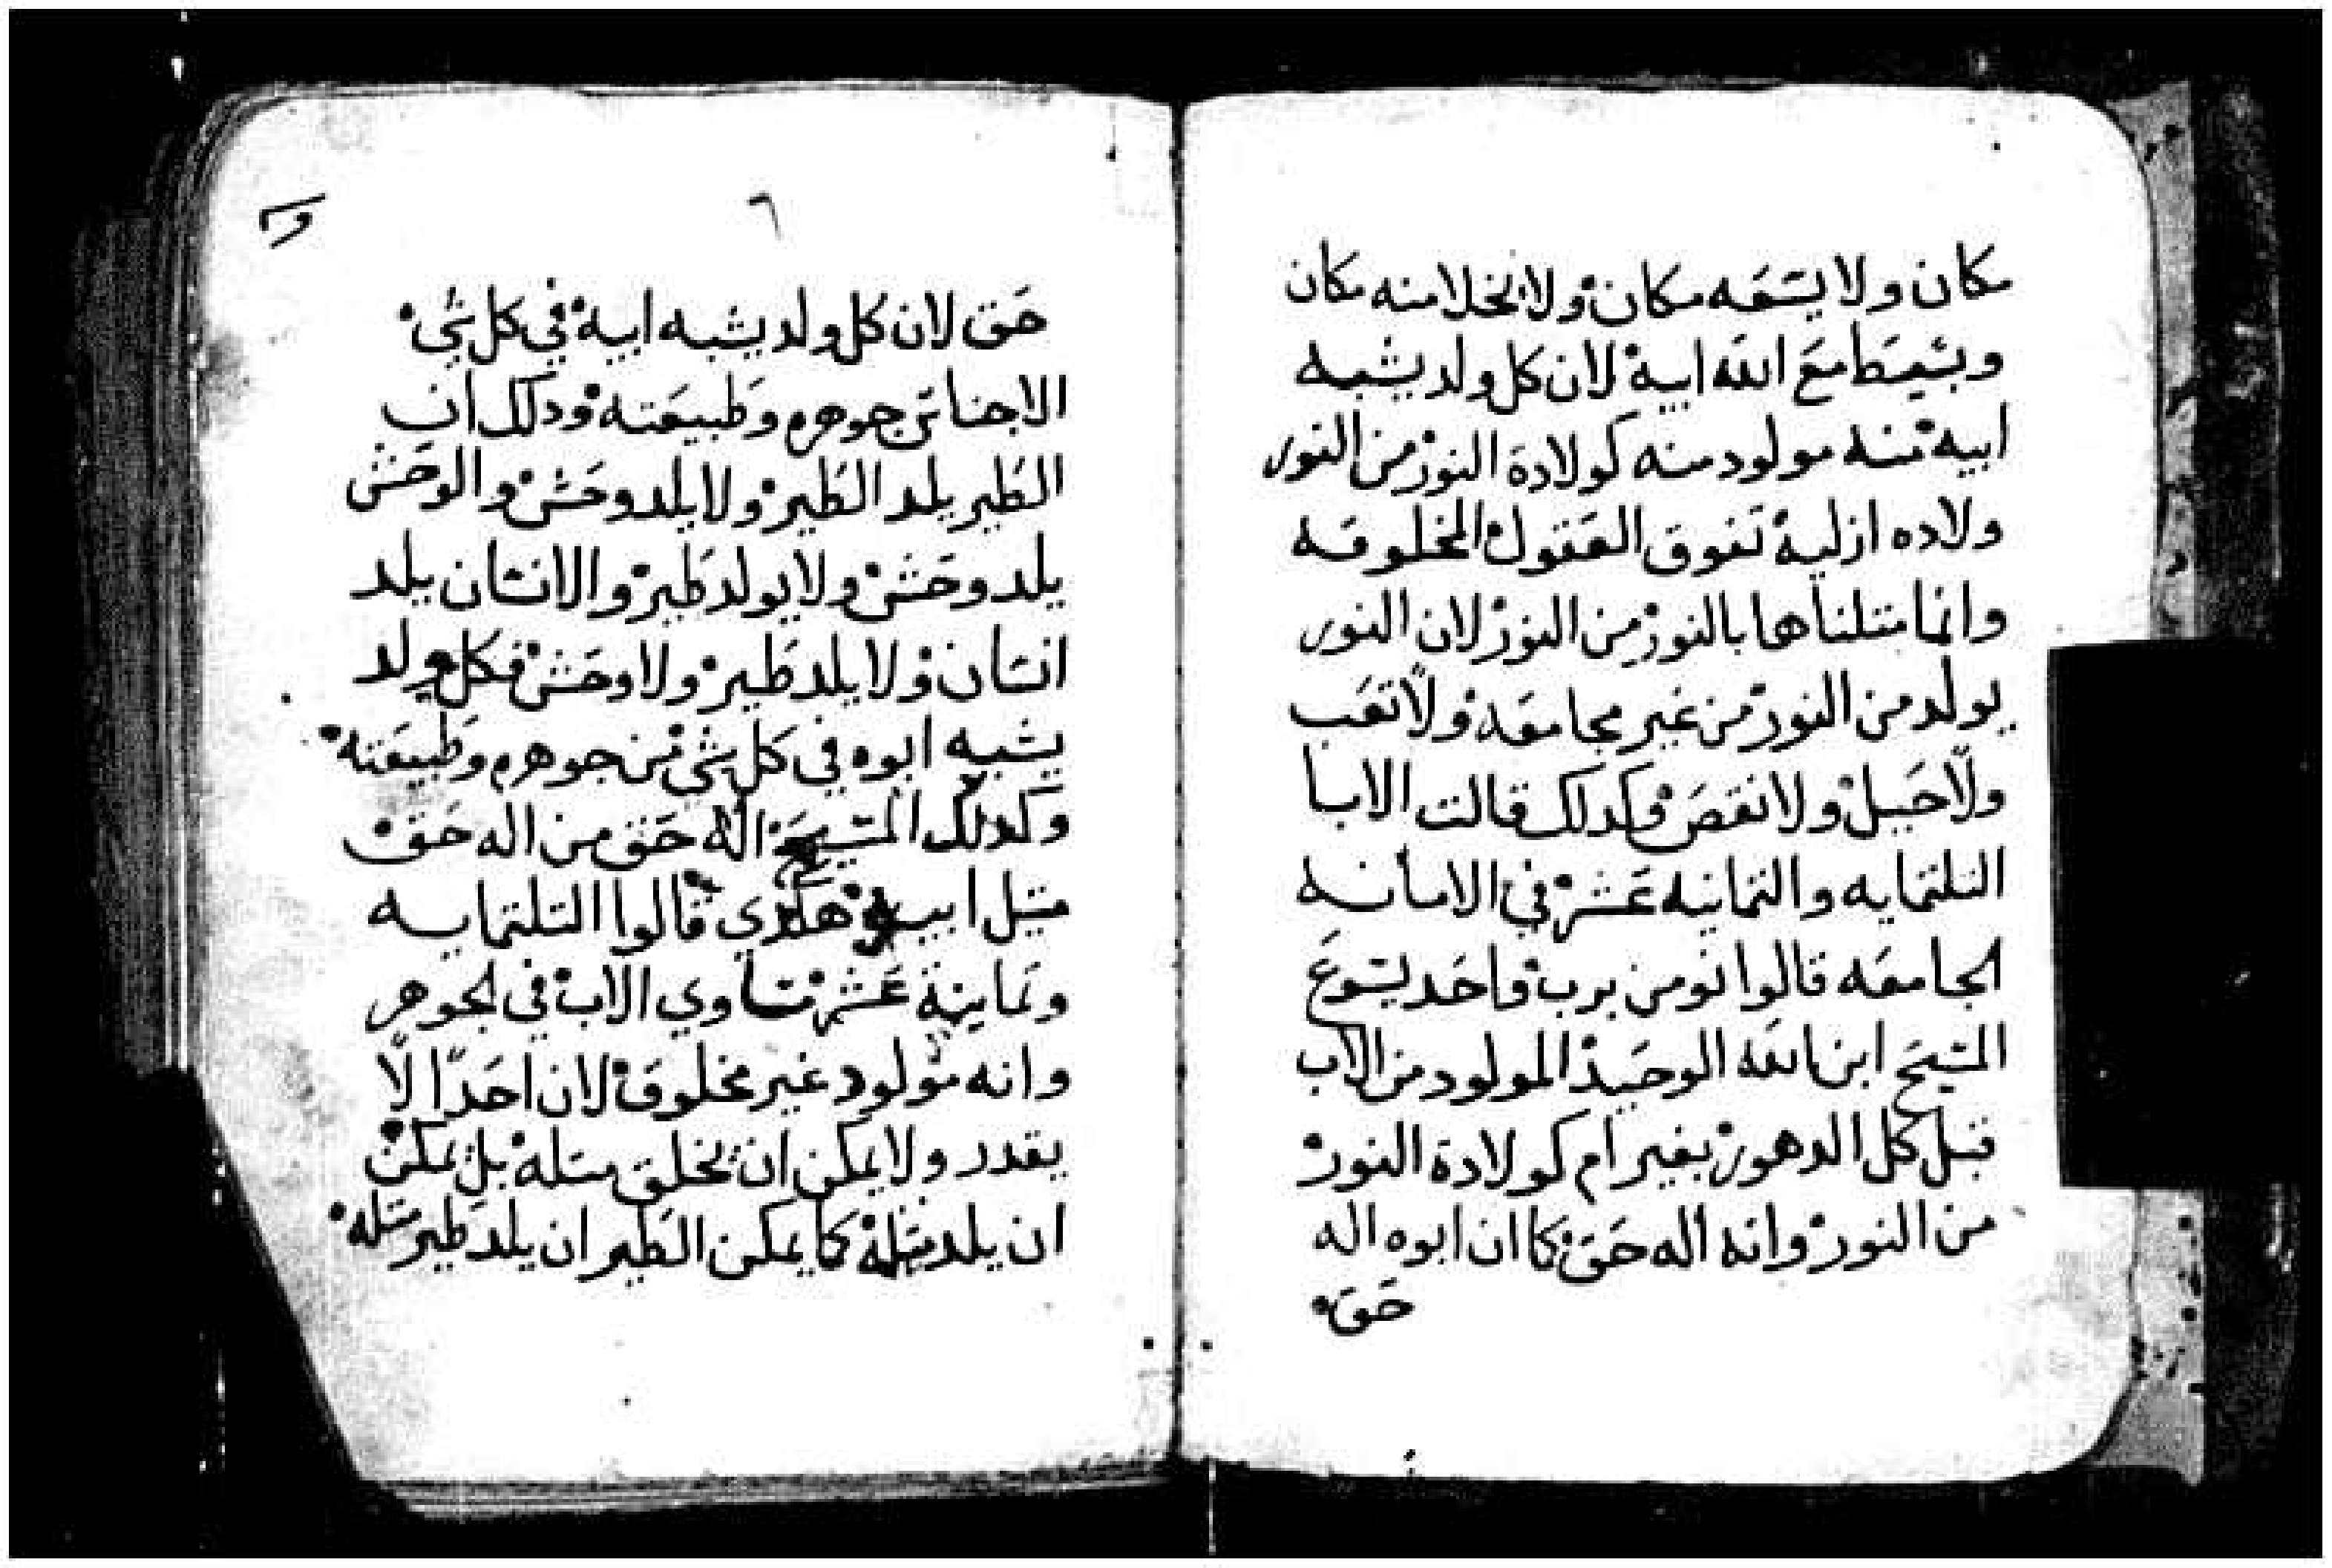 مكان ولا يسعه مكان ولا يخلا منه مكان
مع الله ابيه لان كل ولد يشبه
ابيه منه مولود منه كولادة النور من النور
ولاده ازلية تفوق العقول المخلوقه
وانما متلناها بالنور من النور لان النور
يولد من النور من غير مجامعه ولا تعب
ولا حبل ولا نقص وكدلك قالت الابا
التلتمايه والتمانيه عشر في الامانه
الجامعه قالوا نومن برب واحد يسوع
المسيح ابن الله الوحيد المولود من الاب
قبل كل الدهور بغير ام كولادة النور
من النور وانه اله حق كما ان ابوه اله
حق
٦
حق لان كل ولد يشبه ابيه في كل شي
جوهره وطبيعته ودلك ان
الطير يلد الطير ولا يلد وحش والوحش
يلد وحش ولا يولد طير والانسان يلد
انسان ولا يلد طير ولا وحش فكل ولد
يشبه ابوه في كل شي من جوهره وطبيعته
وكدلك المسيح اله حق من اله حق
متل ابيه هكدي قالوا التلتمايه
وتمانية عشر مساوي الاب في الجوهر
وانه مولود غير مخلوق لان احدا لا
يقدر ولا يمكن ان يخلق متله بل يمكن
ان يلد متله كما يمكن الطير ان يلد طير متله